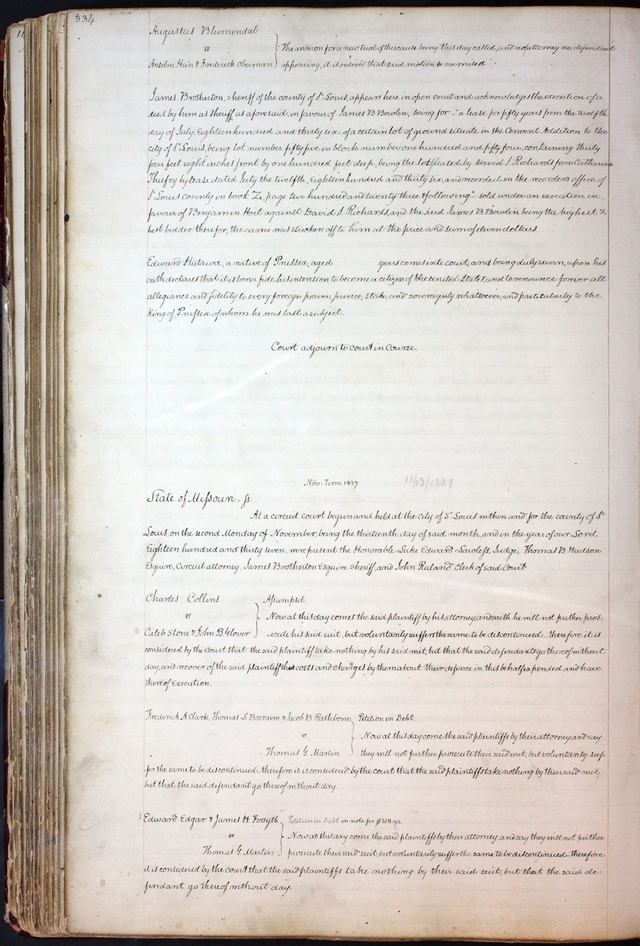 334
Augustus Blumendal
vs
Anselm Hain & Frederick Oberman
The motion for a new trial of this cause being this day called, and no attorney nor defendant
appearing, it is ordered that said motion be overruled
James Brotherton, sheriff of the county of St Louis, appears here in open court and acknowledges the execution of a
deed by him as sheriff as aforesaid, in favour of James B Bowlin, being for "a lease for fifty years from the twelfth
day of July, Eighteen hundred and thirty six, of a certain lot of ground situate in the Convent Addition to the
city of St Louis, being lot number fifty five in block number one hundred and fifty four, containing thirty
four feet eight inches front by one hundred feet deep, being the lot leased by David S. Richards from Catharine
Thiefry by lease dated July the twelfth, Eighteen hundred and thirty six, and recorded in the recorders office of
St Louis county in book Z, page two hundred and twenty three & following" sold under an execution in
favour of Benjamin Hoit against David S. Richards, and the said James B Bowlin being the highest &
best bidder therefor, the same was stricken off to him at the price and sum of eleven dollars
Edward Hutawa, a native of Prussia, aged years comes into court, and being duly sworn, upon his
oath declares that it is bona fide his intention to become a citizen of the united States, and to renounce forever all
allegiance and fidelity to every foreign power, prince, state, and sovereignty whatsoever, and particularly to the
King of Prussia of whom he was last a subject.
Court adjourn to court in Course
Nov: Term 1837 11/13/1837
State of Missouri, ss
At a circuit court begun and held at the city of St Louis within and for the county of St
Louis, on the second Monday of November, being the thirteenth day of said month, and in the year of our Lord
Eighteen hundred and thirty seven, were present the Honorable Luke Edward Lawless, Judge, Thomas B Hudson
Esquire, Circuit attorney, James Brotherton Esquire Sheriff, and John Ruland Clerk of said Court
Charles Collins
vs
Caleb Stone & John B Glover
Assumpsit
Now at this day comes the said plaintiff by his attorney, and saith he will not further pros-
ecute his said suit, but voluntarily suffers the same to be discontinued therefore it is
considered by the Court that the said plaintiff take nothing by his said suit, but that the said defendants go thereof without
day, and recover of the said plaintiff this costs and charges by them about their defence in this behalf expended and have
thereof Execution.
Frederick A. Clark, Thomas S. Bowram & Jacob B. Rathbone
vs
Thomas G. Martin
Petition in Debt
Now at this day come the said plaintiffs by their attorney, and say
they will not further prosecute their said suit, but voluntarily suf-
fer the same to be discontinued therefore it is considered by the court that the said plaintiffs take nothing by their said suit
but that the said defendant go thereof without day
Edward Edgar & James H. Forsyth
vs
Thomas G. Martin
Petition in Debt on note for
Now at this day come the said plaintiffs by their attorney, and say they will not further
prosecute their said suit, but voluntarily suffer the same to be discontinued therefore
it is considered by the court that the said plaintiffs take nothing by their said suit, but that the said de-
fendant go thereof without day.